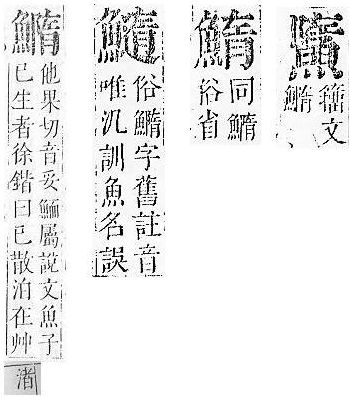 他果切音妥屬說文魚子
已生者徐鍇曰已散泊在艸
渚
俗字舊註音
唯汎訓魚名誤
鰖
同
俗省
籀文